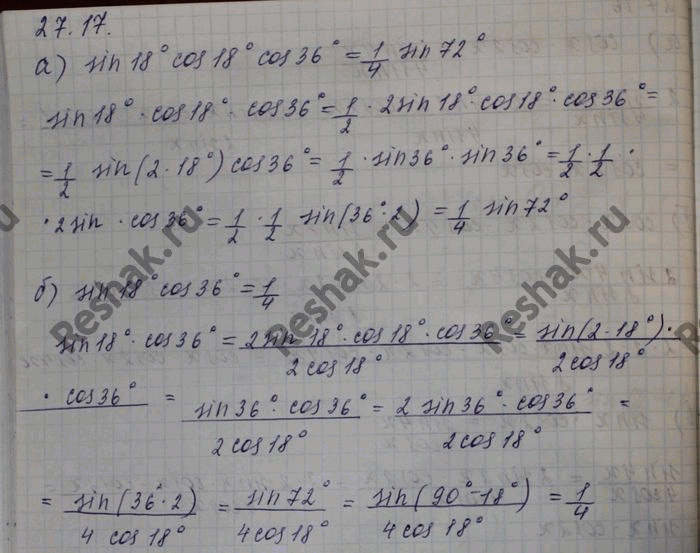 27.17.
а) sin 18° cos 18° cos 36° = 1/4 sin 72°
sin 18° · cos 18° · cos 36° = 1/2 · 2 sin 18° · cos 18° · cos 36° =
= 1/2 sin(2 · 18°) cos 36° = 1/2 · sin 36° · sin 36° = 1/2 · 1/2 ·
· 2 sin · cos 36° = 1/2 · 1/2 sin(36° · 2) = 1/4 sin 72°
б) sin 18° cos 36° = 1/4
sin 18° · cos 36° = (2 sin 18° · cos 18° · cos 36°)/(2 cos 18°) = (sin(2 · 18°) ·)/(2 cos 18°)
· cos 36° = (sin 36° · cos 36°)/(2 cos 18°) = (2 sin 36° · cos 36°)/(2 cos 18°) =
= (sin(36° · 2))/(4 cos 18°) = (sin 72°)/(4 cos 18°) = (sin(90° - 18°))/(4 cos 18°) = 1/4
Reshak.ru
Reshak.ru
Reshak.ru
Reshak.ru